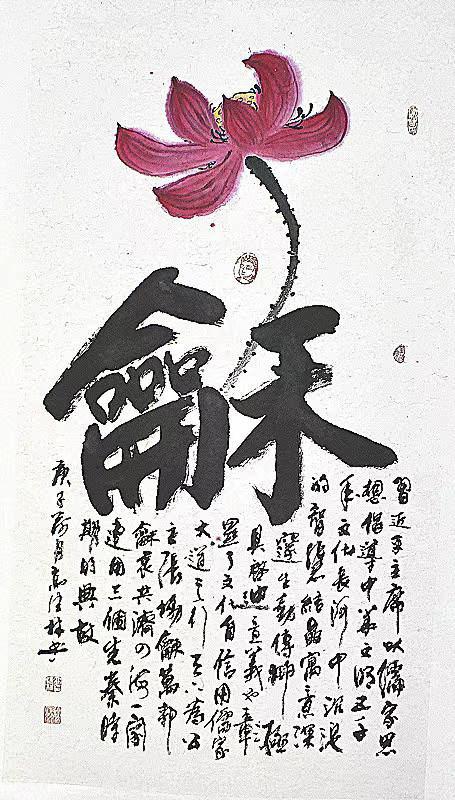 龢
習近平主席以儒家思
想倡導中華文明五千
年文化長河中沉淀
的智慧結晶寓意深
邃生動傳神極
具啓迪意義也彰
显了文化自信用儒家
大道之行天下爲公
主張協龢萬邦
龢衷共濟四海一家
連用三個先秦時
期的典故
庚子荷月